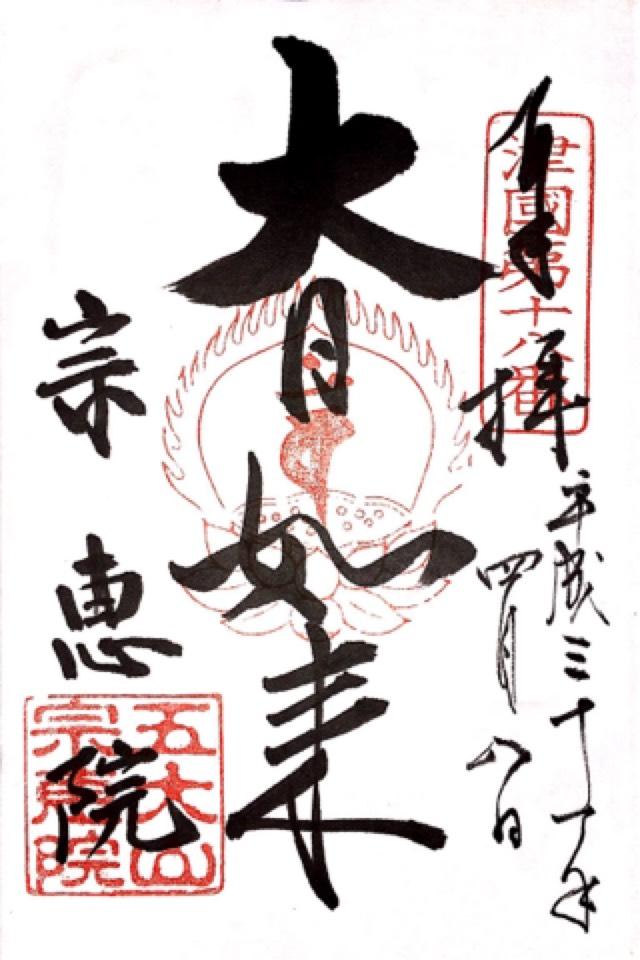 奉拝
津國第十八番
平成三十一年
四月八日
大日如来
宗恵院
五大山
宗恵院